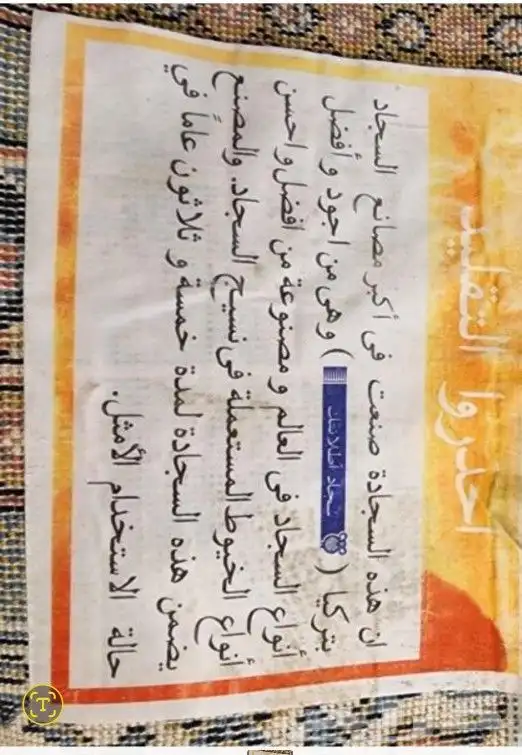 احذروا التقليد
ان هذه السجادة صنعت فى أكبر مصانع السجاد
بتركيا (سجاد اطلانتك) وهى من اجود وأفضل
أنواع السجاد فى العالم ومصنوعة من افضل واحسن
أنواع الخيوط المستعملة فى نسيج السجاد. والمصنع
يضمن هذه السجادة لمدة خمسة و ثلاثون عاماً في
حالة الاستخدام الأمثل.